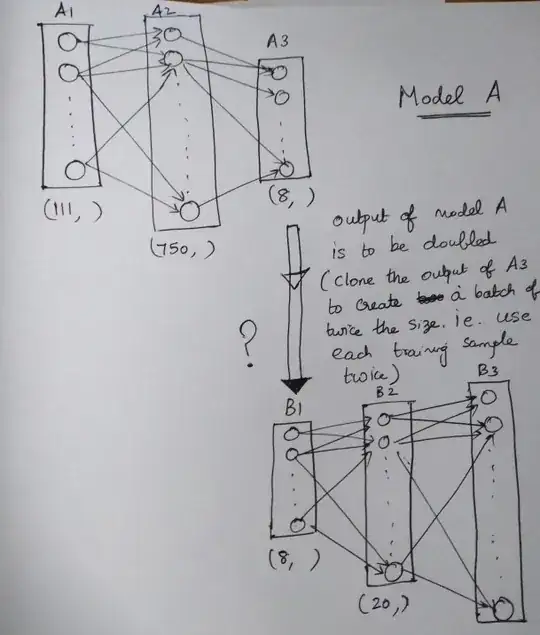 A1
A2
A3
Model A
(111, )
(750, )
(8, )
output of model A
is to be doubled
(clone the output of A3
to create a batch of
twice the size. ie. use
each training sample
twice)
?
B1
B2
B3
(8, )
(20,)